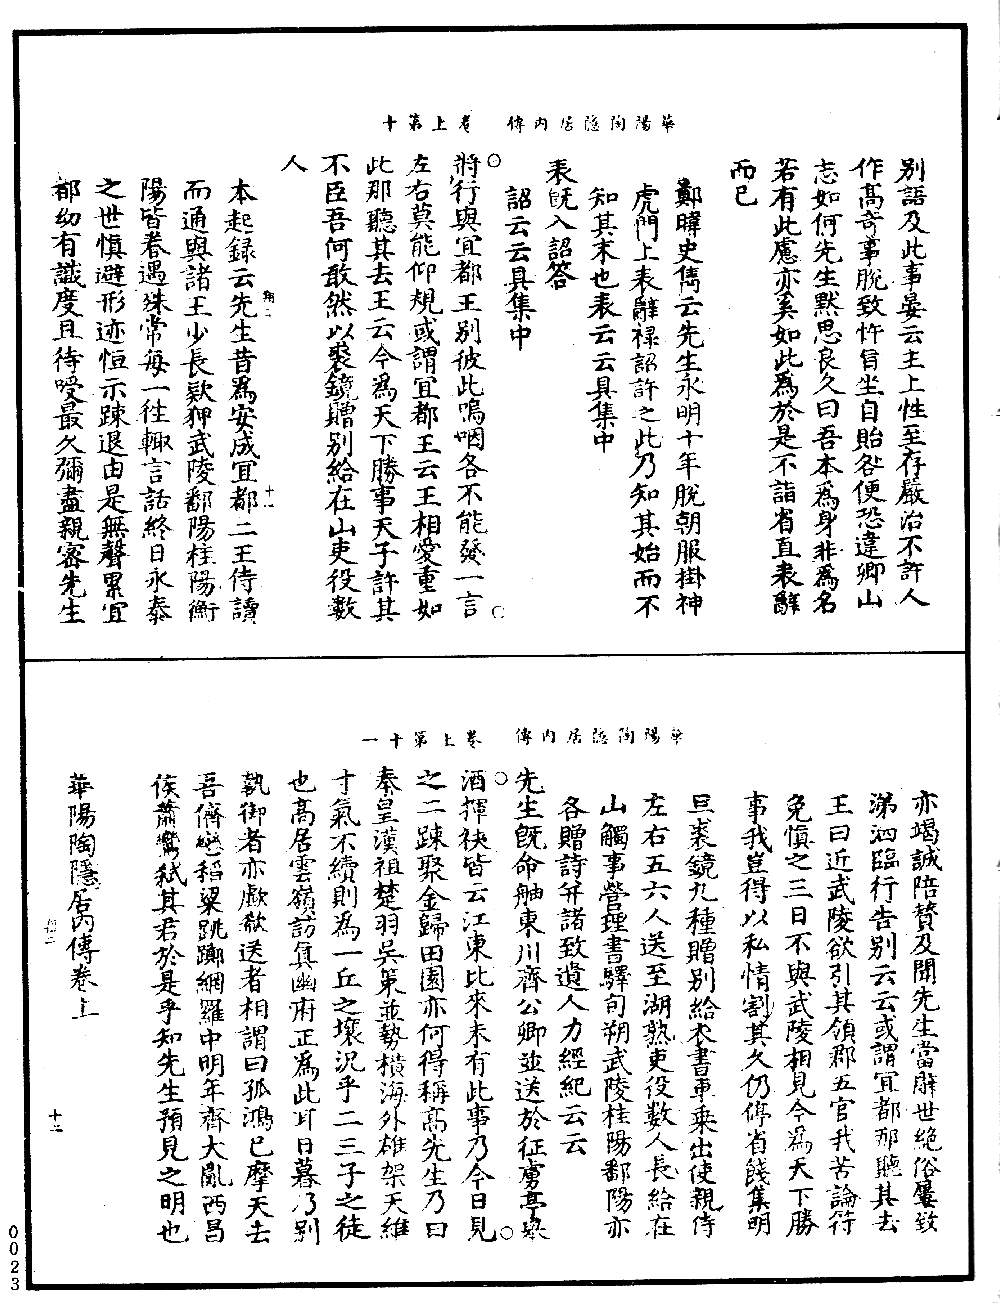 華陽陶隱居內傳　卷上第十
别語及此事晏云主上性至存嚴治不許人
作髙奇事脫致忤旨坐自貽咎便恐違卿山
志如何先生默思良久曰吾本爲身非爲名
若有此慮亦奚如此爲於是不詣省直表辭
而已
鄭暐史雋云先生永明十年脫朝服掛神
虎門上表辭禄詔許之此乃知其始而不
知其末也表云云具集中
表旣入詔答
詔云云具集中
將行與宜都王别彼此嗚咽各不能發一言
左右莫能仰規或謂宜都王云王相愛重如
此那聽其去王云今爲天下勝事天子許其
不臣吾何敢然以裘鏡贈别給在山吏役數
人
本起録云先生昔爲安成宜都二王侍讀
而通與諸王少長欵狎武陵鄱陽桂陽衡
陽皆眷遇殊常每一往輙言話終日永泰
之世慎避形迹恒示踈退由是無聲累宜
都幼有識度且待受最久彌盡親密先生
華陽陶隱居內傳　卷上第十一
亦竭誠陪賛及聞先生當辭世絶俗屢致
涕泗臨行告别云云或謂宜都那聽其去
王曰近武陵欲引其領郡五官我苦論符
免慎之三日不與武陵相見今爲天下勝
事我豈得以私情割其久仍停省餞集明
旦裘鏡九種贈别給衣書車乗出使親侍
左右五六人送至湖熟吏役數人長給在
山觸事營理書驛旬朔武陵桂陽鄱陽亦
各贈詩并諸致遺人力經紀云云
先生旣命舳東川齊公卿並送於征虜亭衆
酒揮袂皆云江東比來未有此事乃今日見
之二踈聚金歸田園亦何得稱髙先生乃曰
秦皇漢祖楚羽吳策並勢横海外雄架天維
寸氣不續則爲一丘之壤况乎二三子之徒
也髙居雲嶺訪真幽府正爲此耳日暮乃别
執御者亦歔欷送者相謂曰孤鴻已摩天去
吾儕戀稻粱跳躑網羅中明年齊大亂西昌
侯蕭鸞弒其君於是乎知先生預見之明也
華陽陶隱居內傳卷上
十二
0023